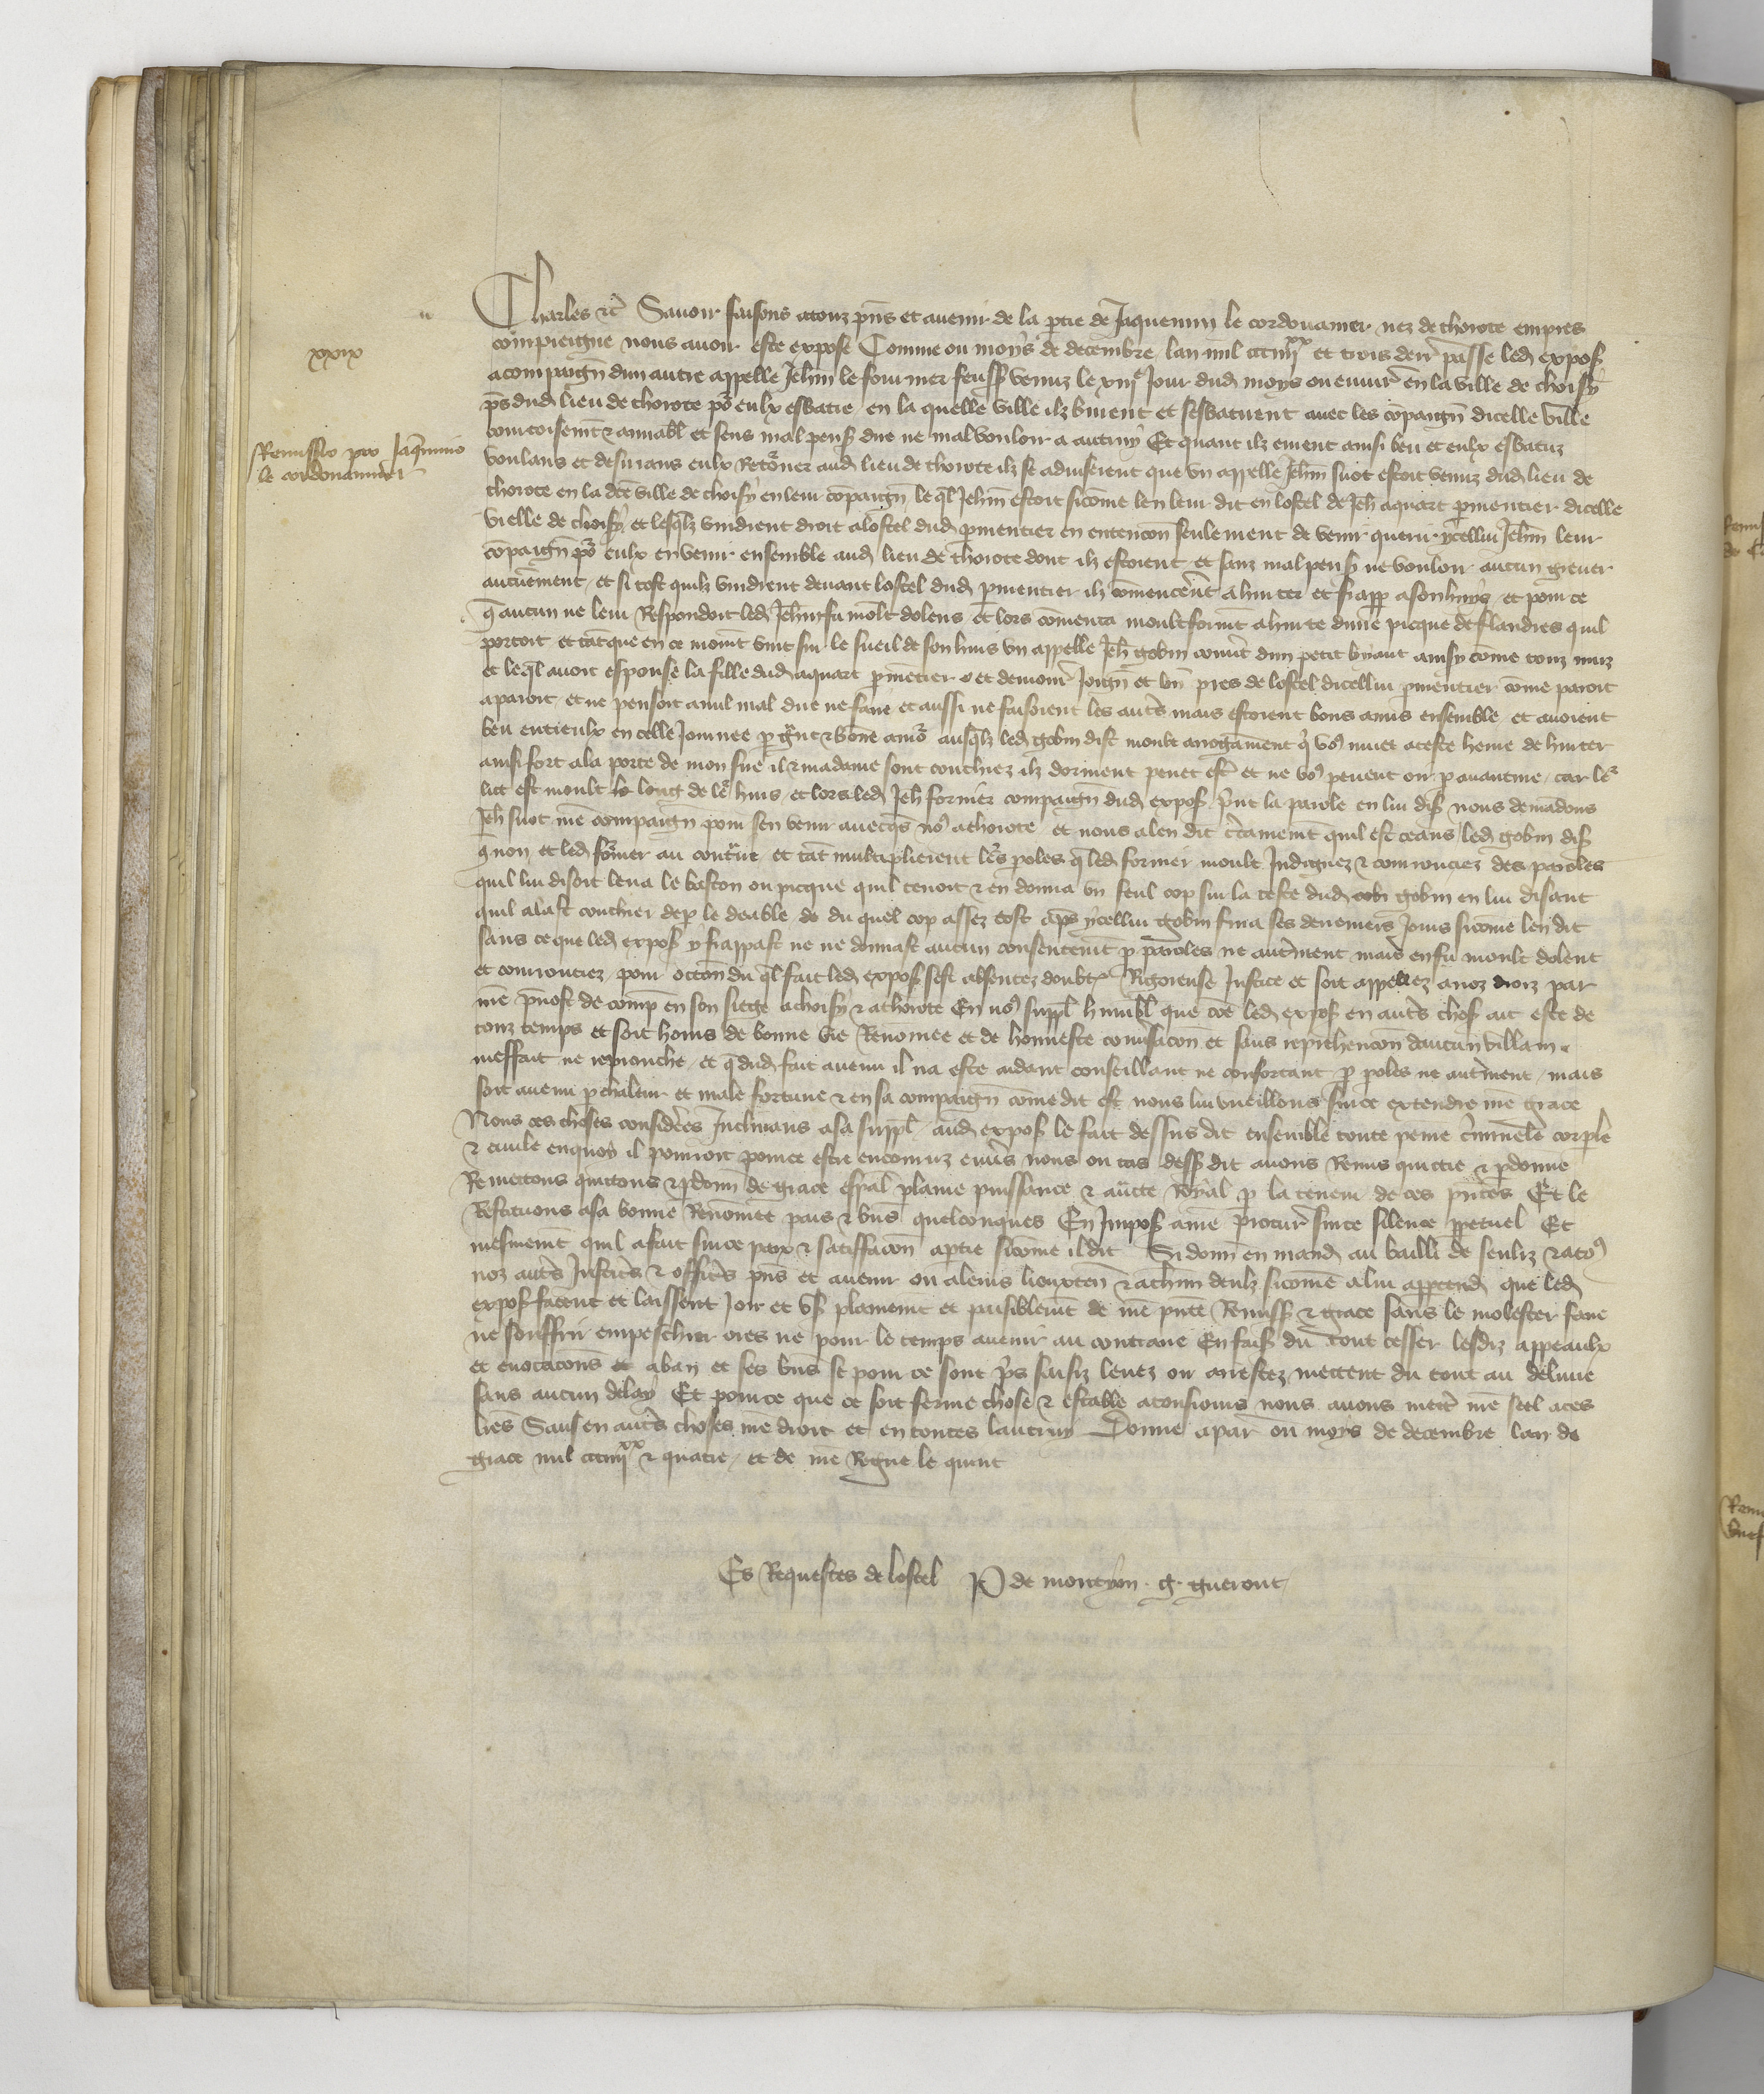 xxix
Remissio pro Jaq̄mino
le cordouannier
Charles ⁊c̄ Savoir faisons a touz pñs et avenir de la ptie de Jaquemin le cordouannier nez de thorote empres
compieigne nous avoir este expose Comme ou moys de decembre lan mil ccciiijxx et trois derr̄ passe led expoſ
acompaign̄ dun autre appelle Jehan le fournier feussſ venuz le xiije Jour dud moys ou environ en la ville de choisy
p̄s dud lieu de thorote po᷑ eulx esbatre en la quelle ville ilz burent et sesbatirent avec les cōpaign̄ dicelle ville
courtoisemt ⁊ amiabl et sens mal penſ dire ne mal vouloir a autruy Et quant ilz eurent ainsi beu et eulx esbatuz
voulans et desirans eulx Reto᷑ner aud lieu de thorote ilz se adviserent que un appelle Jehan suot estoit venuz dud lieu de
thorote en la dc̄e ville de choisy en leur cōpaign̄ le q̄l Jehan estoit sicōme len leur dit en lostel de Jeh̄ aquart pmentier dicelle
vielle de choisy et lesq̄lz vindrent droit a lostel dud pmentier en entencōn seulement de venir querir ycellui Jehan leur
cōpaign̄ po᷑ eulx en venir ensemble aud lieu de thorote dont ilz estoient et sanz mal penſ ne vouloir aucun grever
aucunement et si tost quilz vindrent devant lostel dud pmentier ilz cōmencerent a hurter et frapp a son huys et pour ce
q̄ aucun ne leur Respondoit led Jehan fu molt dolens et lors cōmenca moult formt a hurte dune picque de flandres quil
portoit et tāt que en ce momt vint sur le sueil de son huis un appelle Jeh̄ gobin couv̄t dun petit ainsy cōme touz nuz
et leq̄l avoit espousé la fille dud aquart pmētier et demour Joign̄ et pres de lostel dicellui pmentier cōme paroit
aparoit et ne pensoit a nul mal dire ne faire et aussi ne faisoient les aut̄s mais estoient bons amis ensemble et avoient
beu entreulx en celle Journee p gr̄nt ⁊ bōne amo᷑ ausq̄lz led gobin dist moult arrogāment q̄ vo9 muet a ceste heure de hurter
ainsi fort a la porte de mon sire il ⁊ madame sont couchiez ilz dorment et ne vo9 pevent oir p avanture car le᷑
lit est moult loing de le᷑ huis et lors led Jeh̄ fornier compaign̄ dud expoſ p̄nt la parole en lui diſ nous demādons
Jeh̄ suot nr̄e compaign̄ pour sen venir avecq̄s no9 a thorote et nous a len dit c̄tainemt quil est ceans led gobin diſ
q̄ non et led fo᷑nier au contr̄re et tāt multiplierent le᷑s poles q̄ led fornier moult Indignez ⁊ courrouciez des paroles
quil lui disoit leva le baston ou picque quil tenoit ⁊ en donna un seul cop sur la teste dud gobin en lui disant
quil alast couchier dep le deable du quel cop assez tost aps ycellui gobin fina ses derreniers Jours sicōme len dit
sans ce que led expoſ y frappast ne ne donnast aucun consentemt p paroles ne autrement mais en fu moult dolent
et courrouciez pour occōn du q̄l fait led expoſ sest absentez doubt Rigoreuse Justice et soit appellez a noz droiz par
nr̄e p̄vost de comp en son siege a choisy ⁊ a thorote En no9 suppl humbl que cōe led expoſ en aut̄s choſ ait este de
touz temps et soit homs de bonne vie Renomee et de honneste cōversacōn et sans reprehencōn daucun villain
meffait ne reprouche et q̄ dud fait avenu il na este aidant conseillant ne confortant p poles ne aut̄ment mais
soit avenu p chaleur et male fortune ⁊ en sa compaign̄ cōme dit est nous lui vueillons sur ce extendre nr̄e grace
Nous ces choses considerees Inclinans a sa suppl aud expoſ le fait dessus dit ensemble toute peine c̄iminele corple
⁊ civile en quoy il pourroit pour ce estre encouruz env̄s nous ou cas dessſ dit avons Remis quictie ⁊ pdonne
Remettons quittons ⁊ pdonn̄ de grace esp̄al plaine puissance ⁊ auc̄te Royal p la teneur de ces pñtes Et le
Restituons a sa bonne Renomee pais ⁊ bn̄s quelconques En Impoſ a nr̄e procur̄ sur ce silence ppetuel Et
mesmemt quil a fait sur ce paix ⁊ satisfacōn a ptie sicōme il dit Si donn̄ en mand au bailli de senliz ⁊ a to9
noz aut̄s Justic̄s ⁊ offic̄s pñs et avenir ou a leurs lieuxten̄ ⁊ a ch̄un deulz sicōme a lui apptend que led
expoſ facent et laissent Joir et uſ plainemt et paisiblemt de nr̄e pñte Remissſ ⁊ grace sans le molester faire
ne souffrir empeschier ores ne pour le temps avenir au contraire En faiſ du tout cesser lesdiz appeaulx
et evocacōns et a ban et ses bn̄s se pour ce sont p̄s saisiz levez ou arrestez mettent du tout au delivre
sans aucun delay Et pour ce que ce soit ferme chose ⁊ estable a tousiours nous avons mett̄ nr̄e seel a ces
lr̄es Sauf en aut̄s choses nr̄e droit et en toutes lautruy Donne a par̄ ou moys de decembre lan de
grace mil ccciiijxx ⁊ quatre et de nr̄e Regne le quint
Es Requestes de lostel P de montyon . g . gueront